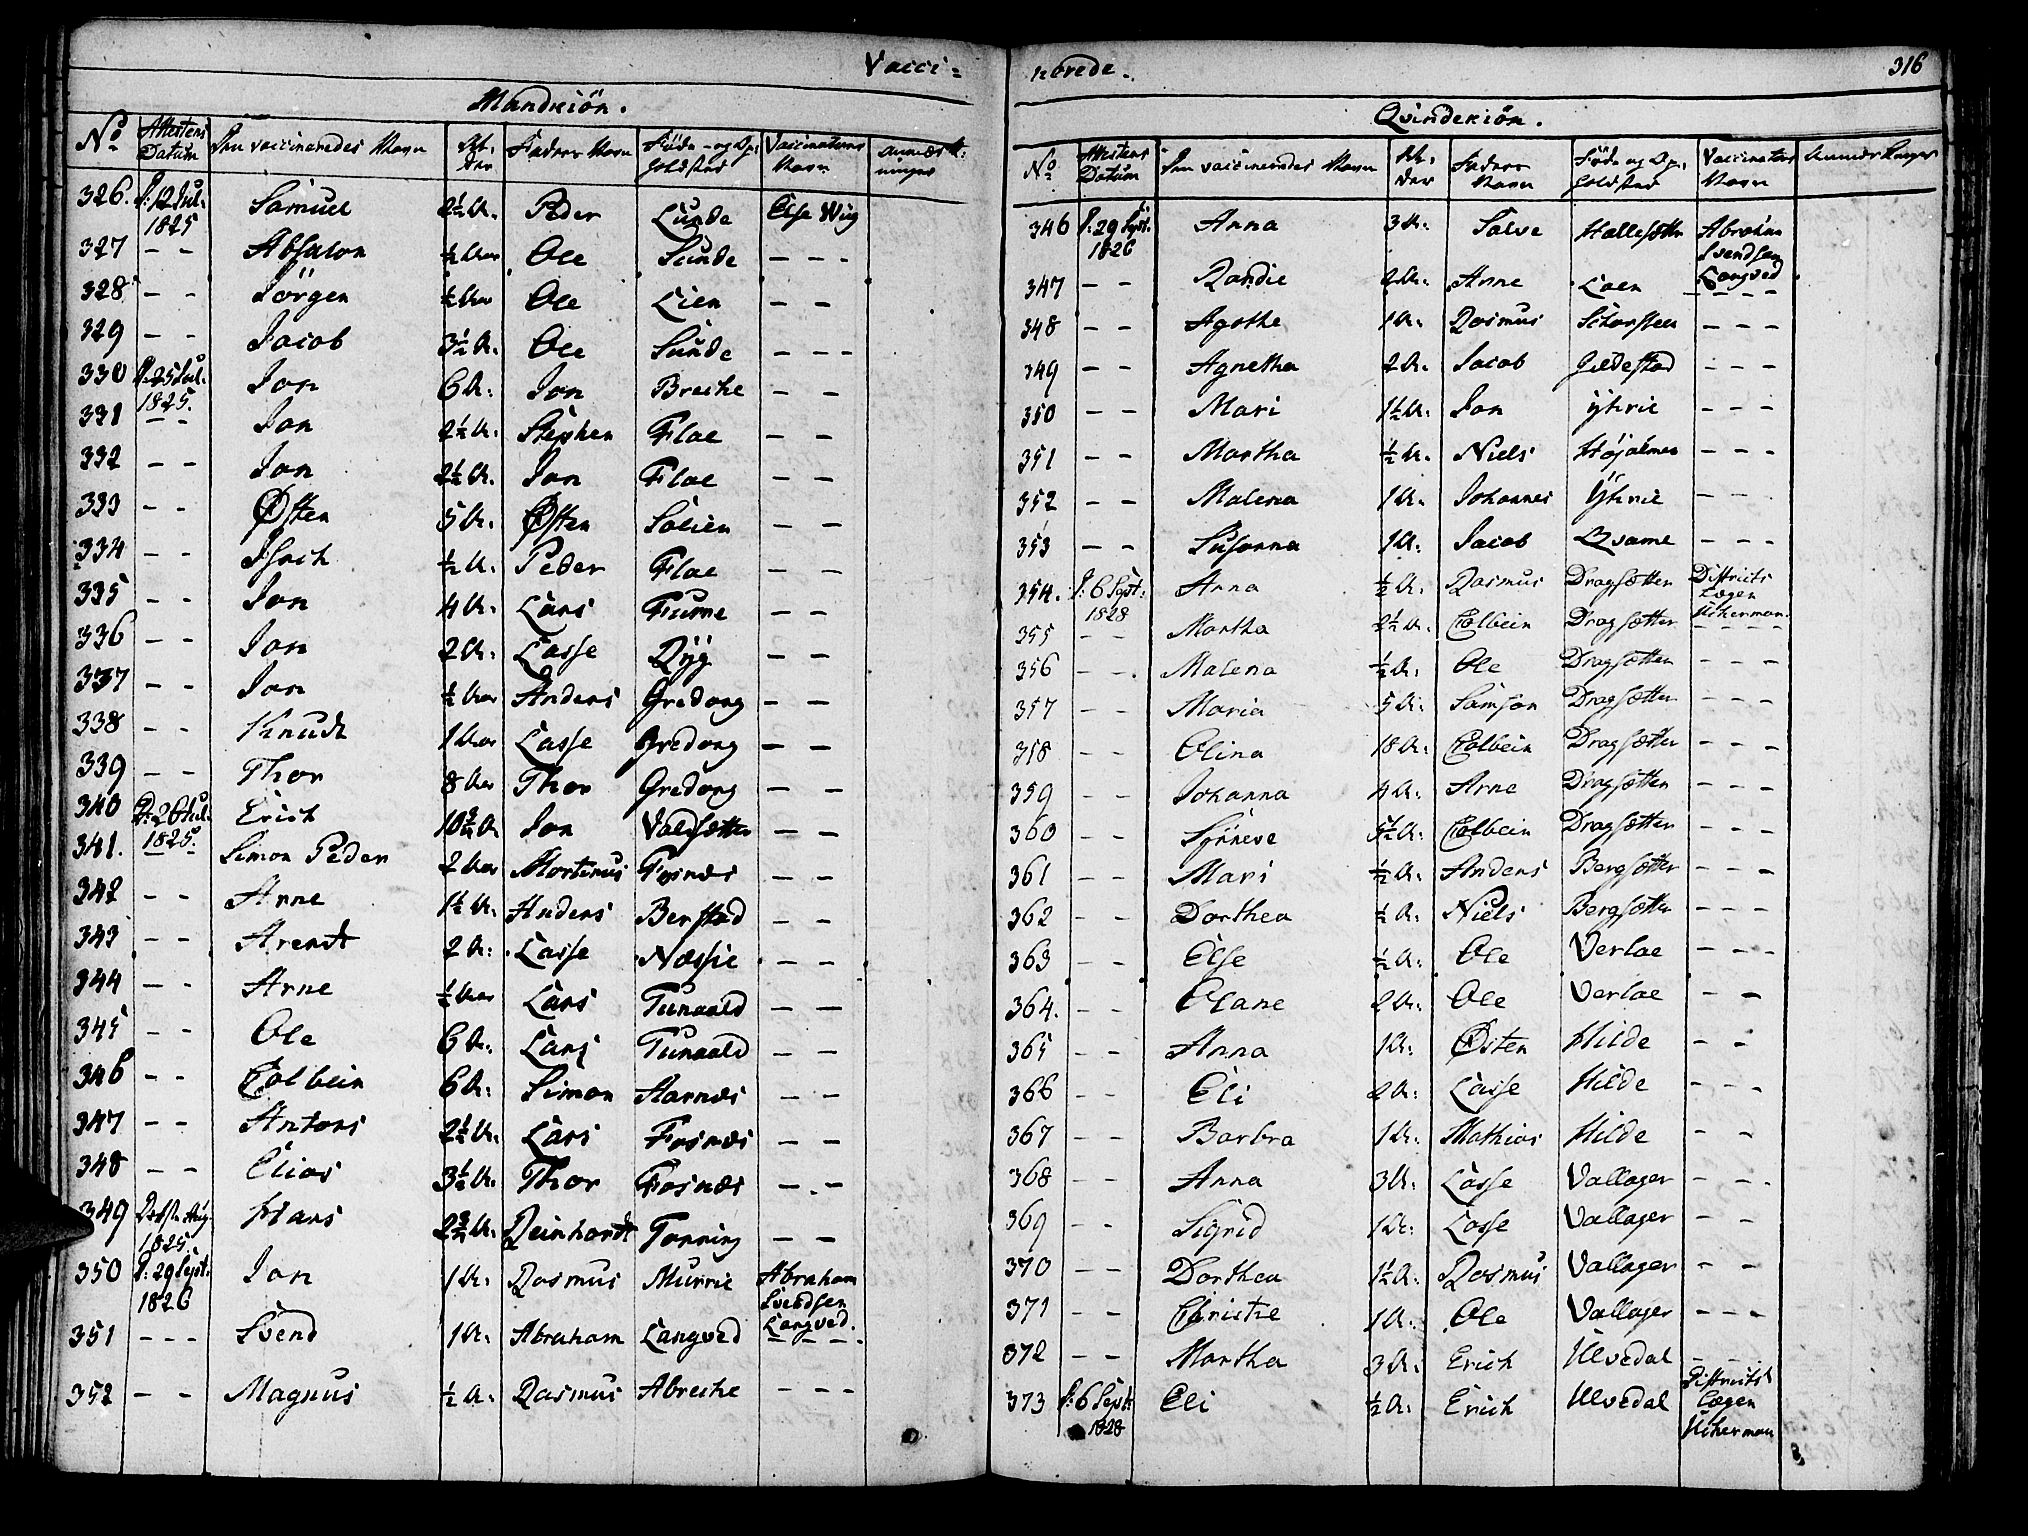 Vacci=
Mandkiön.
No Attestens Datum Den vaccineredes Navn Al- der Faders Navn Föde- og Op- holdsted Vaccinateurs Navn Anmærk- ninger
326. d: 12 Jul. 1825 Samuel 2½ A. Peder Lunde Else Wiig
327 - - Absalon ½ Aar Ole Sunde - - -
328 - - Jörgen ½ Aar Ole Lien - -
329 - - Jacob 3½ A. Ole Sunde - - -
330 d: 25 Jul. 1825. Jon 6 A. Jon Breche - -
331 - - Jon 2½ A. Stephen Floe - -
332 - - Jon 2½ A. Jon Floe - -
333 - - Østen 5 A. Østen Solien - -
334 - - Isach ½ A. Peder Floe - -
335 - - Jon 4 A. Lars Furne - -
336 - - Jon 2 A. Lasse Ryg - -
337 - - Jon ½ Aar Anders Gredong - -
338 - - Knudt 1 Aar Lasse Gredong - -
339 - - Thor 8 Aar Thor Gredong - -
340 d: 26 Jul. 1825. Erich Jon Valdsætter - -
341. - - Simon Peder 2 Aar Mortinus Fosnæs - -
342 - - Arne 1½ A. Anders Berstad - -
343 - - Arendt 2 A. Lasse Næssie - -
344 - - Arne ½ Aar Lars Tunaald - -
345 - - Ole 6 A. Lars Tunaald - -
346 - - Colbein 6 A. Simon Aarnæs - -
347 - - Antoni 2½ A. Lars Fosnæs - -
348 - - Elias 3½ A. Thor Fosnæs - - -
349 Aug. 1825 Hans Reinhardt Tonning - -
350 d: 29 Sept: 1826 Jon 1 A. Rasmus Murrie Abraham Svendsen Langved.
351 - - - Svend 1 A. Abraham Langved - - -
352 - - Magnus ½ A. Rasmus Abreche - - -
nerede.
316
Qvindekiön.
No Attestens Datum Den vaccineredes Navn Al- der Faders Navn Föde og Op- holdsted Vaccinateurs Navn Anmærkninger
346 d: 29 Sept. 1826 Anna 3 A. Salve Hallesætter Abraham Svendsen Langved
347 - - Randie 2 A. Arne Loen - - - -
348 - - Agothe 1 A. Rasmus Schorsteen - - -
349 - - Agnetha 2 A. Jacob Gildestad - - -
350 - - Mari 1½ A. Jon Ythrie - - -
351 - - Martha ½ A. Niels Højalmen - - -
352 - - Malena 1 A. Johannes Ythrie - - -
353 - - Susanna 1 A. Jacob Qvame - - -
354. d: 6 Sept: 1828 Anna ½ A. Rasmus Dragsætter Districts Lægen Ucherman.
355 - - Martha 2½ A. Colbein Dragsætter - - - -
356 - - Malena ½ A. Ole Dragsætter - - -
357 - - Maria 5 A. Samson Dragsætter - - -
358 Olina 18 A. Colbein Dragsætter - - -
359 - - Johanna 4 A. Arne Dragsætter - - -
360 - - Synneve Colbein Dragsætter - - -
361 - - Mari ½ A. Anders Bergsætter - - -
362 - - Dorthea ½ A. Niels Bergsætter - - -
363 - - Else ½ A. Ole Verloe - - -
364. - - Olane 2 A. Ole Verloe - -
365 - - Anna 1 A. Østen Hilde - -
366 - - Eli 2 A. Lasse Hilde - - -
367 - - Barbra 1 A. Mathias Hilde - -
368 - - Anna 3 A. Lasse Vallager - - -
369 - - Sigrid 1 A. Lasse Vallager - -
370 - - Dorthea 1½ A. Rasmus Vallager - -
371 - - Christie 1 A. Ole Vallager - - -
372 - - Martha 3 A. Erich Ulvedal - -
373 d: 6 Sept: 1828 Eli ½ A. Erich Ulvedal Districts Lægen Ucherman